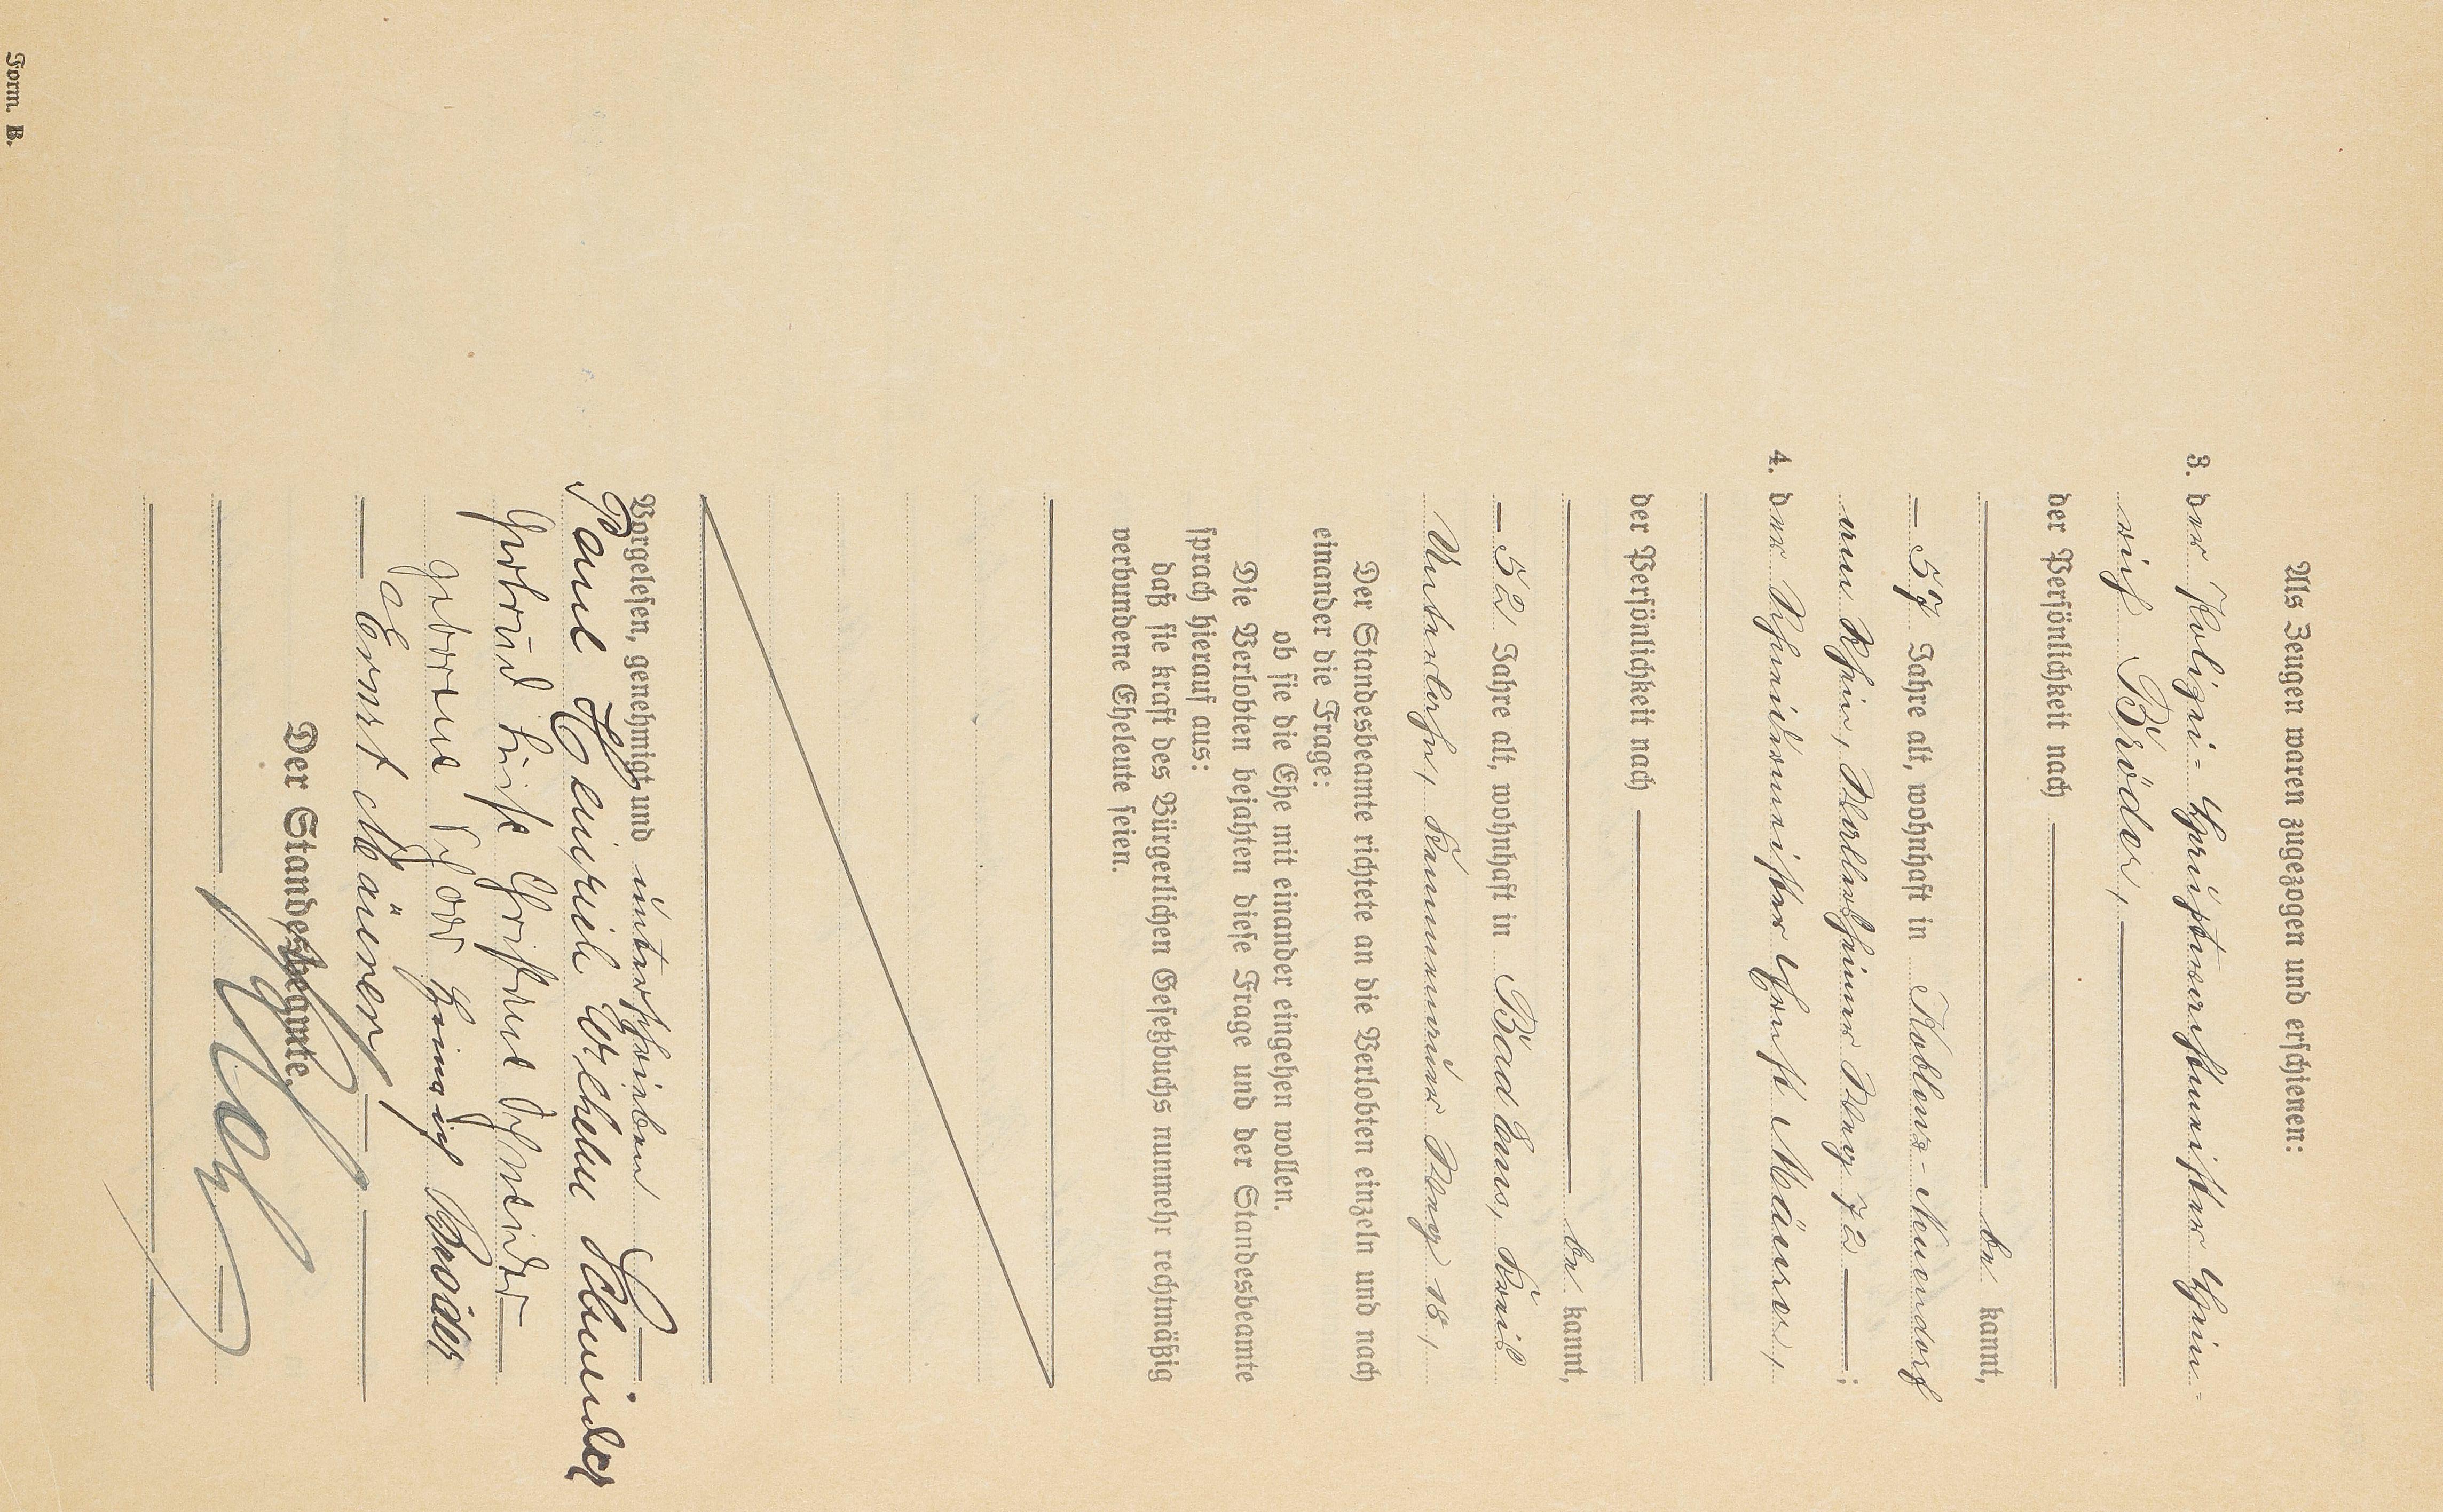 Als Zeugen waren zugezogen und erschienen:
3. der Polizei-Hauptwachtmeister Hein-
rich Bröder,
der Persönlichkeit nach
be kannt,
57 Jahre alt, wohnhaft in Koblenz-Neuendorf
am Rhein, Wallersheimer Weg 72 ;
4. der Schneidermeister Ernst Mäurer,
der Persönlichkeit nach
be kannt,
52 Jahre alt, wohnhaft in Bad Ems, Kreis
Unterlahn, Kemmenauer Weg 18,
Der Standesbeamte richtete an die Verlobten einzeln und nach
einander die Frage:
ob sie die Ehe mit einander eingehen wollen.
Die Verlobten bejahten diese Frage und der Standesbeamte
sprach hierauf aus:
daß sie kraft des Bürgerlichen Gesetzbuchs nunmehr rechtmäßig
verbundene Eheleute seien.
Vorgelesen, genehmigt und unterschrieben
Paul Heinrich Wilhelm Schneider
Gertrud Luise Christine Schneider
geborene Heinrich Bröder
Ernst Mäurer
Der Standesbeamte.
Form. B.